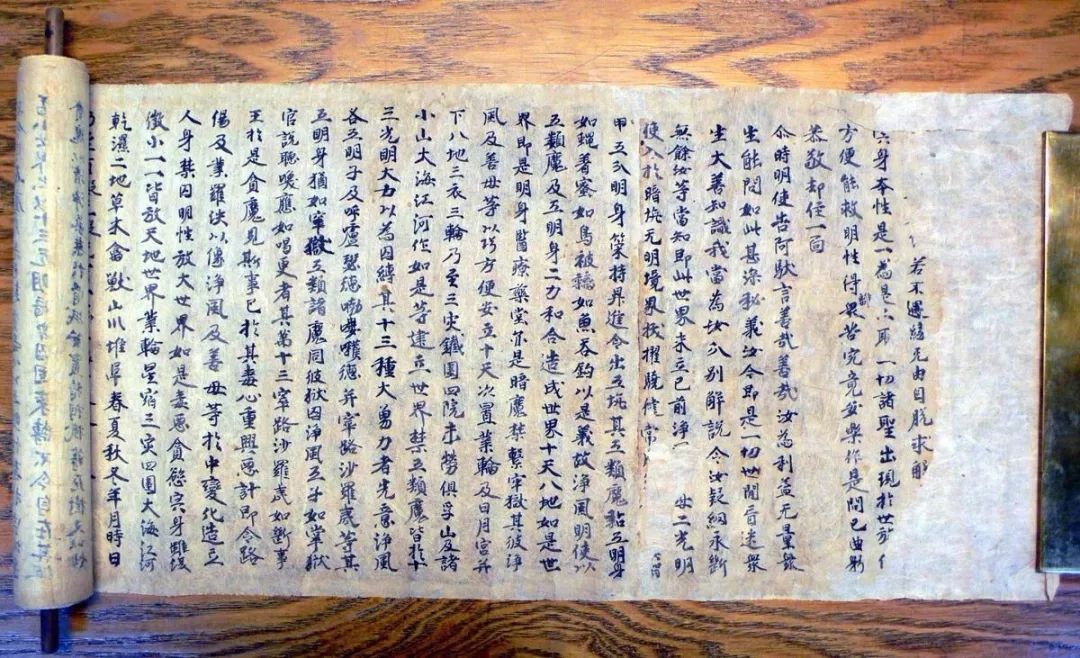 若不遇緣无由自脫求解
宍身本性是一為是二耶一切諸聖出現於世施作
方便能救明性得離衆苦究竟安樂作是問已曲躬
恭敬却住一面
尒時明使告阿馱言善哉善哉汝為利益无量衆
生能問如此甚深秘義汝今即是一切世間盲迷衆
生大善知識我當為汝分別解說令汝疑網永斷
無餘汝等當知即此世界未立已前淨 母二光明
使入於暗坑无明境界拔擢驍健常
甲五分明身策持昇進令出五坑其五類魔黏五明身
如蠅著蜜如鳥被黐如魚吞鈎以是義故淨風明使以
五類魔及五明身二力和合造成世界十天八地如是世
界即是明身醫療藥堂亦是暗魔禁繫牢獄其彼淨
風及善母等以巧方便安立十天次置業輪及日月宮并
下八地三衣三輪乃至三灾鐵圍四院未勞俱孚山及諸
小山大海江河作如是等建立世界禁五類魔皆於十
三光明大力以為囚縛其十三種大勇力者先意淨風
各五明子及呼嚧瑟德嘞嚄德并窣路沙羅夷等其
五明身猶如牢獄五類諸魔同彼獄囚淨風五子如掌獄
官說聽喚應如喝更者其第十三窣路沙羅夷如斷事
王於是貪魔見斯事已於其毒心重興惡計即令路
傷及業羅泱以像淨風及善母等於中變化造立
人身禁囚明性放大世界如是毒惡貪慾宍身雖復
微小一一皆放天地世界業輪星宿三灾四圍大海江河
乾濕二地草木禽獸山川堆阜春夏秋冬年月時日